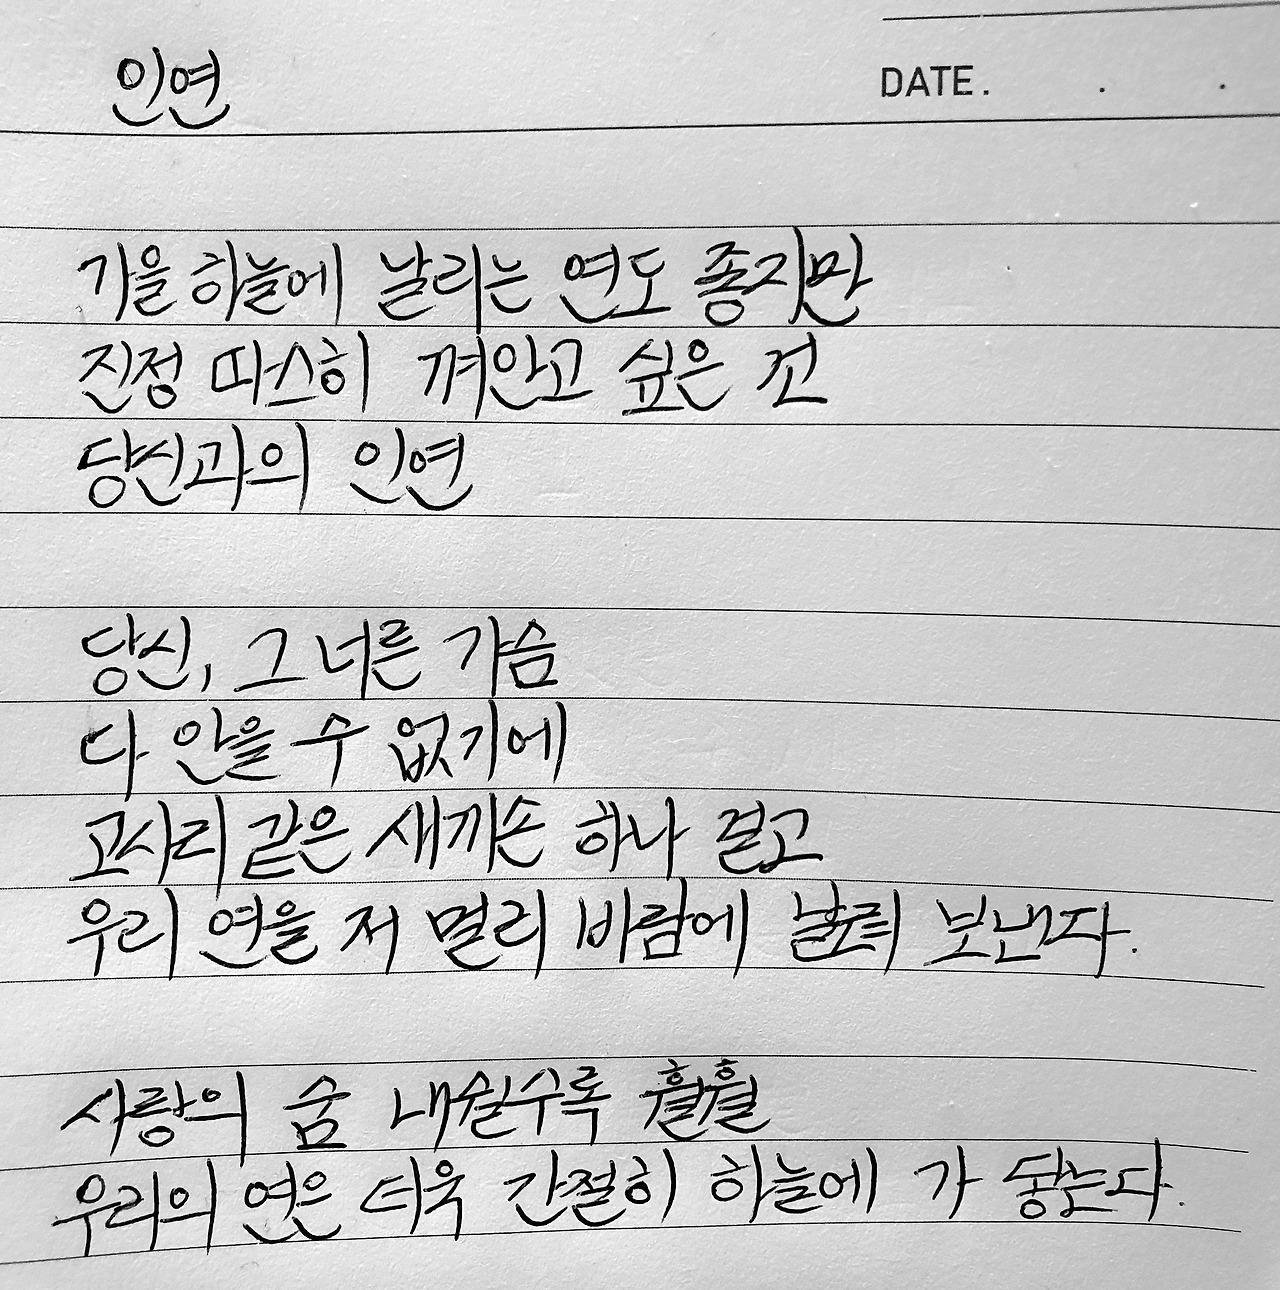 인연
DATE. . .
가을 하늘에 날리는 연도 좋지만
진정 따스히 껴안고 싶은 건
당신과의 인연
당신, 그 너른 가슴
다 안을 수 없기에
고사리 같은 새끼손 하나 걸고
우리 연을 저 멀리 바람에 날려 보낸다.
사랑의 숨 내쉴수록 훨훨
우리의 연은 더욱 간절히 하늘에 가 닿는다.